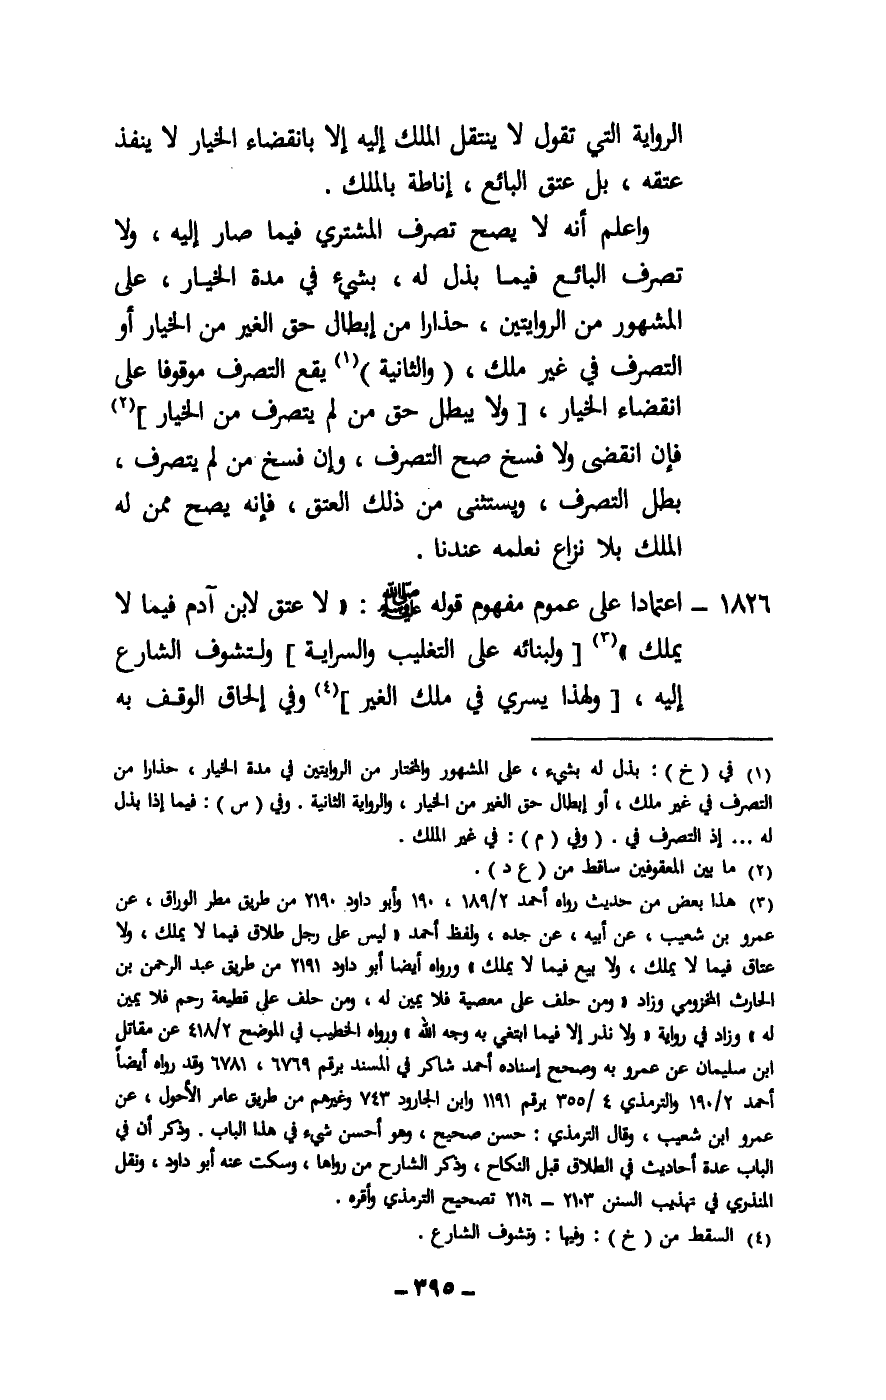 الرواية التي تقول لا ينتقل الملك إليه إلا بانقضاء الخيار لا ينفذ
عتقه ، بل عتق البائع ، إناطة بالملك .
واعلم أنه لا يصح تصرف المشتري فيما صار إليه ، ولا
تصرف البائع فيما بذل له ، بشيء في مدة الخيار ، على
المشهور من الروايتين ، حذارا من إبطال حق الغير من الخيار أو
التصرف في غير ملك ، ( والثانية )(١) يقع التصرف موقوفا على
انقضاء الخيار ، [ ولا يبطل حق من لم يتصرف من الخيار ](٢)
فإن انقضى ولا فسخ صح التصرف ، وإن فسخ من لم يتصرف ،
بطل التصرف ، ويستثنى من ذلك العتق ، فإنه يصح ممن له
الملك بلا نزاع نعلمه عندنا .
١٨٢٦ – اعتمادا على عموم مفهوم قوله ﷺ : « لا عتق لابن آدم فيما لا
يملك »(٣) [ ولبنائه على التغليب والسراية ] ولتشوف الشارع
إليه ، [ ولهذا يسري في ملك الغير ](٤) وفي إلحاق الوقف به
(١) في ( خ ) : بذل له بشيء ، على المشهور والمختار من الروايتين في مدة الخيار ، حذارا من
التصرف في غير ملك ، أو إبطال حق الغير من الخيار ، والرواية الثانية . وفي ( س ) : فيما إذا بذل
له ... إذ التصرف في . ( وفي ( م ) : في غير الملك .
(٢) ما بين المعقوفين ساقط من ( ع د ) .
(٣) هذا بعض من حديث رواه أحمد ١٨٩/٢ ، ١٩٠ وأبو داود ٢١٩٠ من طريق مطر الوراق ، عن
عمرو بن شعيب ، عن أبيه ، عن جده ، ولفظ أحمد « ليس على رجل طلاق فيما لا يملك ، ولا
عتاق فيما لا يملك ، ولا بيع فيما لا يملك » ورواه أيضا أبو داود ٢١٩١ من طريق عبد الرحمن بن
الحارث المخزومي وزاد « ومن حلف على معصية فلا يمين له ، ومن حلف على قطيعة رحم فلا يمين
له » وزاد في رواية « ولا نذر إلا فيما ابتغي به وجه الله » ورواه الخطيب في الموضح ٤١٨/٢ عن مقاتل
ابن سليمان عن عمرو به وصحح إسناده أحمد شاكر في المسند برقم ٦٧٦٩ ، ٦٧٨١ وقد رواه أيضاً
أحمد ١٩٠/٢ والترمذي ٤ /٣٥٥ برقم ١١٩١ وابن الجارود ٧٤٣ وغيرهم من طريق عامر الأحول ، عن
عمرو ابن شعيب ، وقال الترمذي : حسن صحيح ، وهو أحسن شيء في هذا الباب . وذكر أن في
الباب عدة أحاديث في الطلاق قبل النكاح ، وذكر الشارح من رواها ، وسكت عنه أبو داود ، ونقل
المنذري في تهذيب السنن ٢١٠٣ – ٢١٠٦ تصحيح الترمذي وأقره .
(٤) السقط من ( خ ) : وفيها : وتشوف الشارع .
– ٣٩٥ –